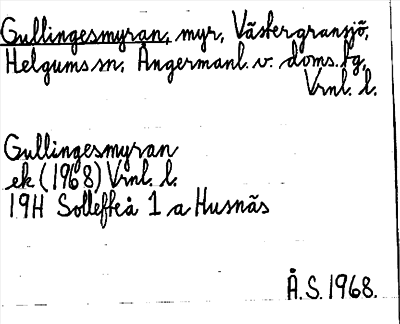 Gullingesmyran, myr, Västergransjö,
Helgums sn, Ångermanl. v. doms. fg,
Vrnl. l.
Gullingesmyran
ek (1968) Vrnl. l.
19H Sollefteå 1 a Husnäs
Å.S. 1968.